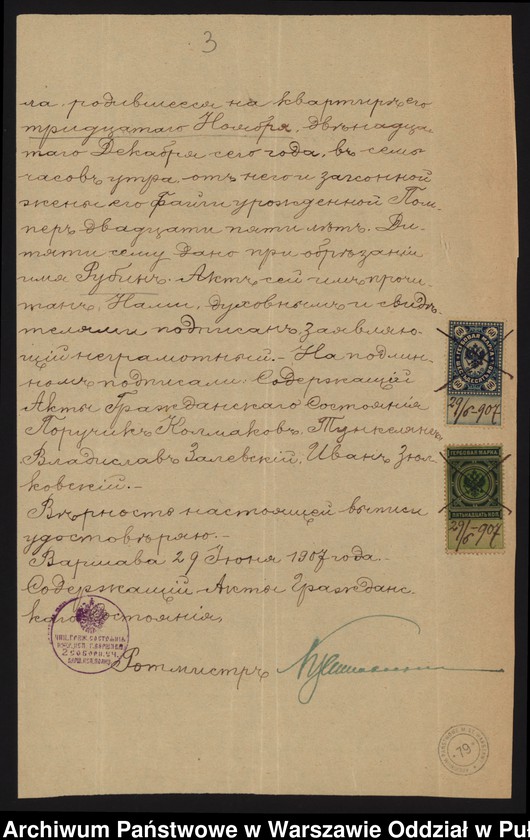 3
ла родившееся на квартирѣ его
тридцатаго Ноября, двѣнадца-
таго Декабря сего года, въ семь
часовъ утра, отъ него и законной
жены его Файги урожденной Пом-
перъ двадцати пяти лѣтъ. Ди-
тяти сему дано при обрѣзаніи
имя Рубинъ. Актъ сей имъ прочи-
танъ, Нами, духовнымъ и свидѣ-
телями подписанъ, заявляю-
щій неграмотный. - На подлин-
номъ подписали: Содержащій
Акты Гражданскаго Состоянія
Поручикъ Колмаковъ,
Владиславъ Залевскій, Иванъ Зюл-
ковскій. -
Вѣрность настоящей выписи
удостовѣряю. -
Варшава 29 Іюня 1907 года
Содержащій Акты Гражданс-
каго Состоянія,
Ротмистръ
60 60
60 60
29/6-907
ГЕРБОВАЯ МАРКА
ПЯТЬНАДЦАТЬ КОП.
29/6-907
ЧИН. ГРАЖ. СОСТОЯНІЯ
2 СОБОРН. УЧ.
79
Archiwum Państwowe w Warszawie Oddział w Pu